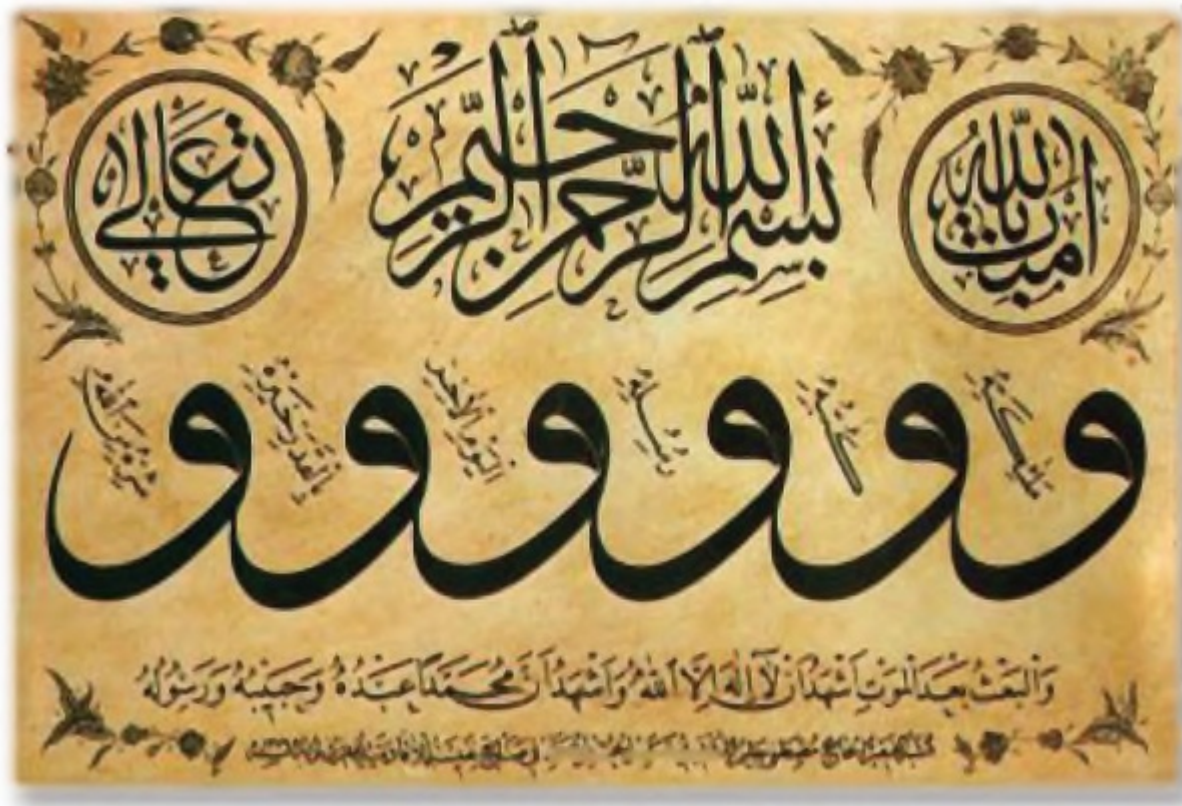 آمنت بالله
بسم الله الرحمن الرحيم
تعالى
و ملئكته و كتبه و رسله و اليوم الاخر و بالقدر خيره و شره من الله
والبعث بعد الموت اشهد ان لا اله الا الله واشهد ان محمدا عبده وحبيبه ورسوله